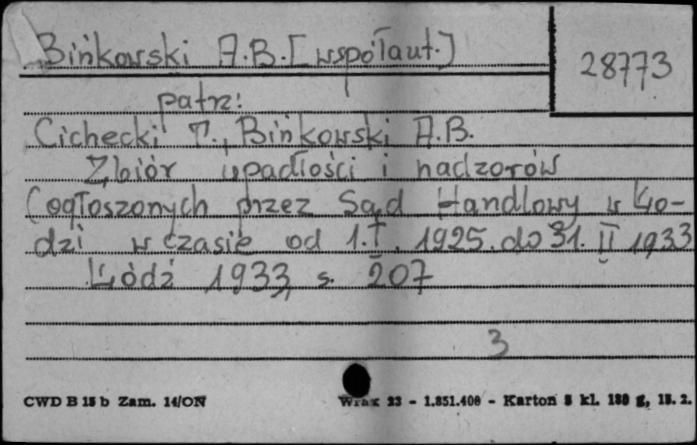 Bińkowski A.B. [współaut.]
28773
patrz:
Cichecki T., Bińkowski A.B.
Zbiór upadłości i nadzorów
(ogłoszonych przez Sąd Handlowy w Ło-
dzi w czasie od 1.I. 1925. do 31. II 1933
Łódź 1933, s. 207
3
CWD B 15 b Zam. 14/ON
23 - 1.851.400 - Karton 5 kl. 180 g, 15. 2.